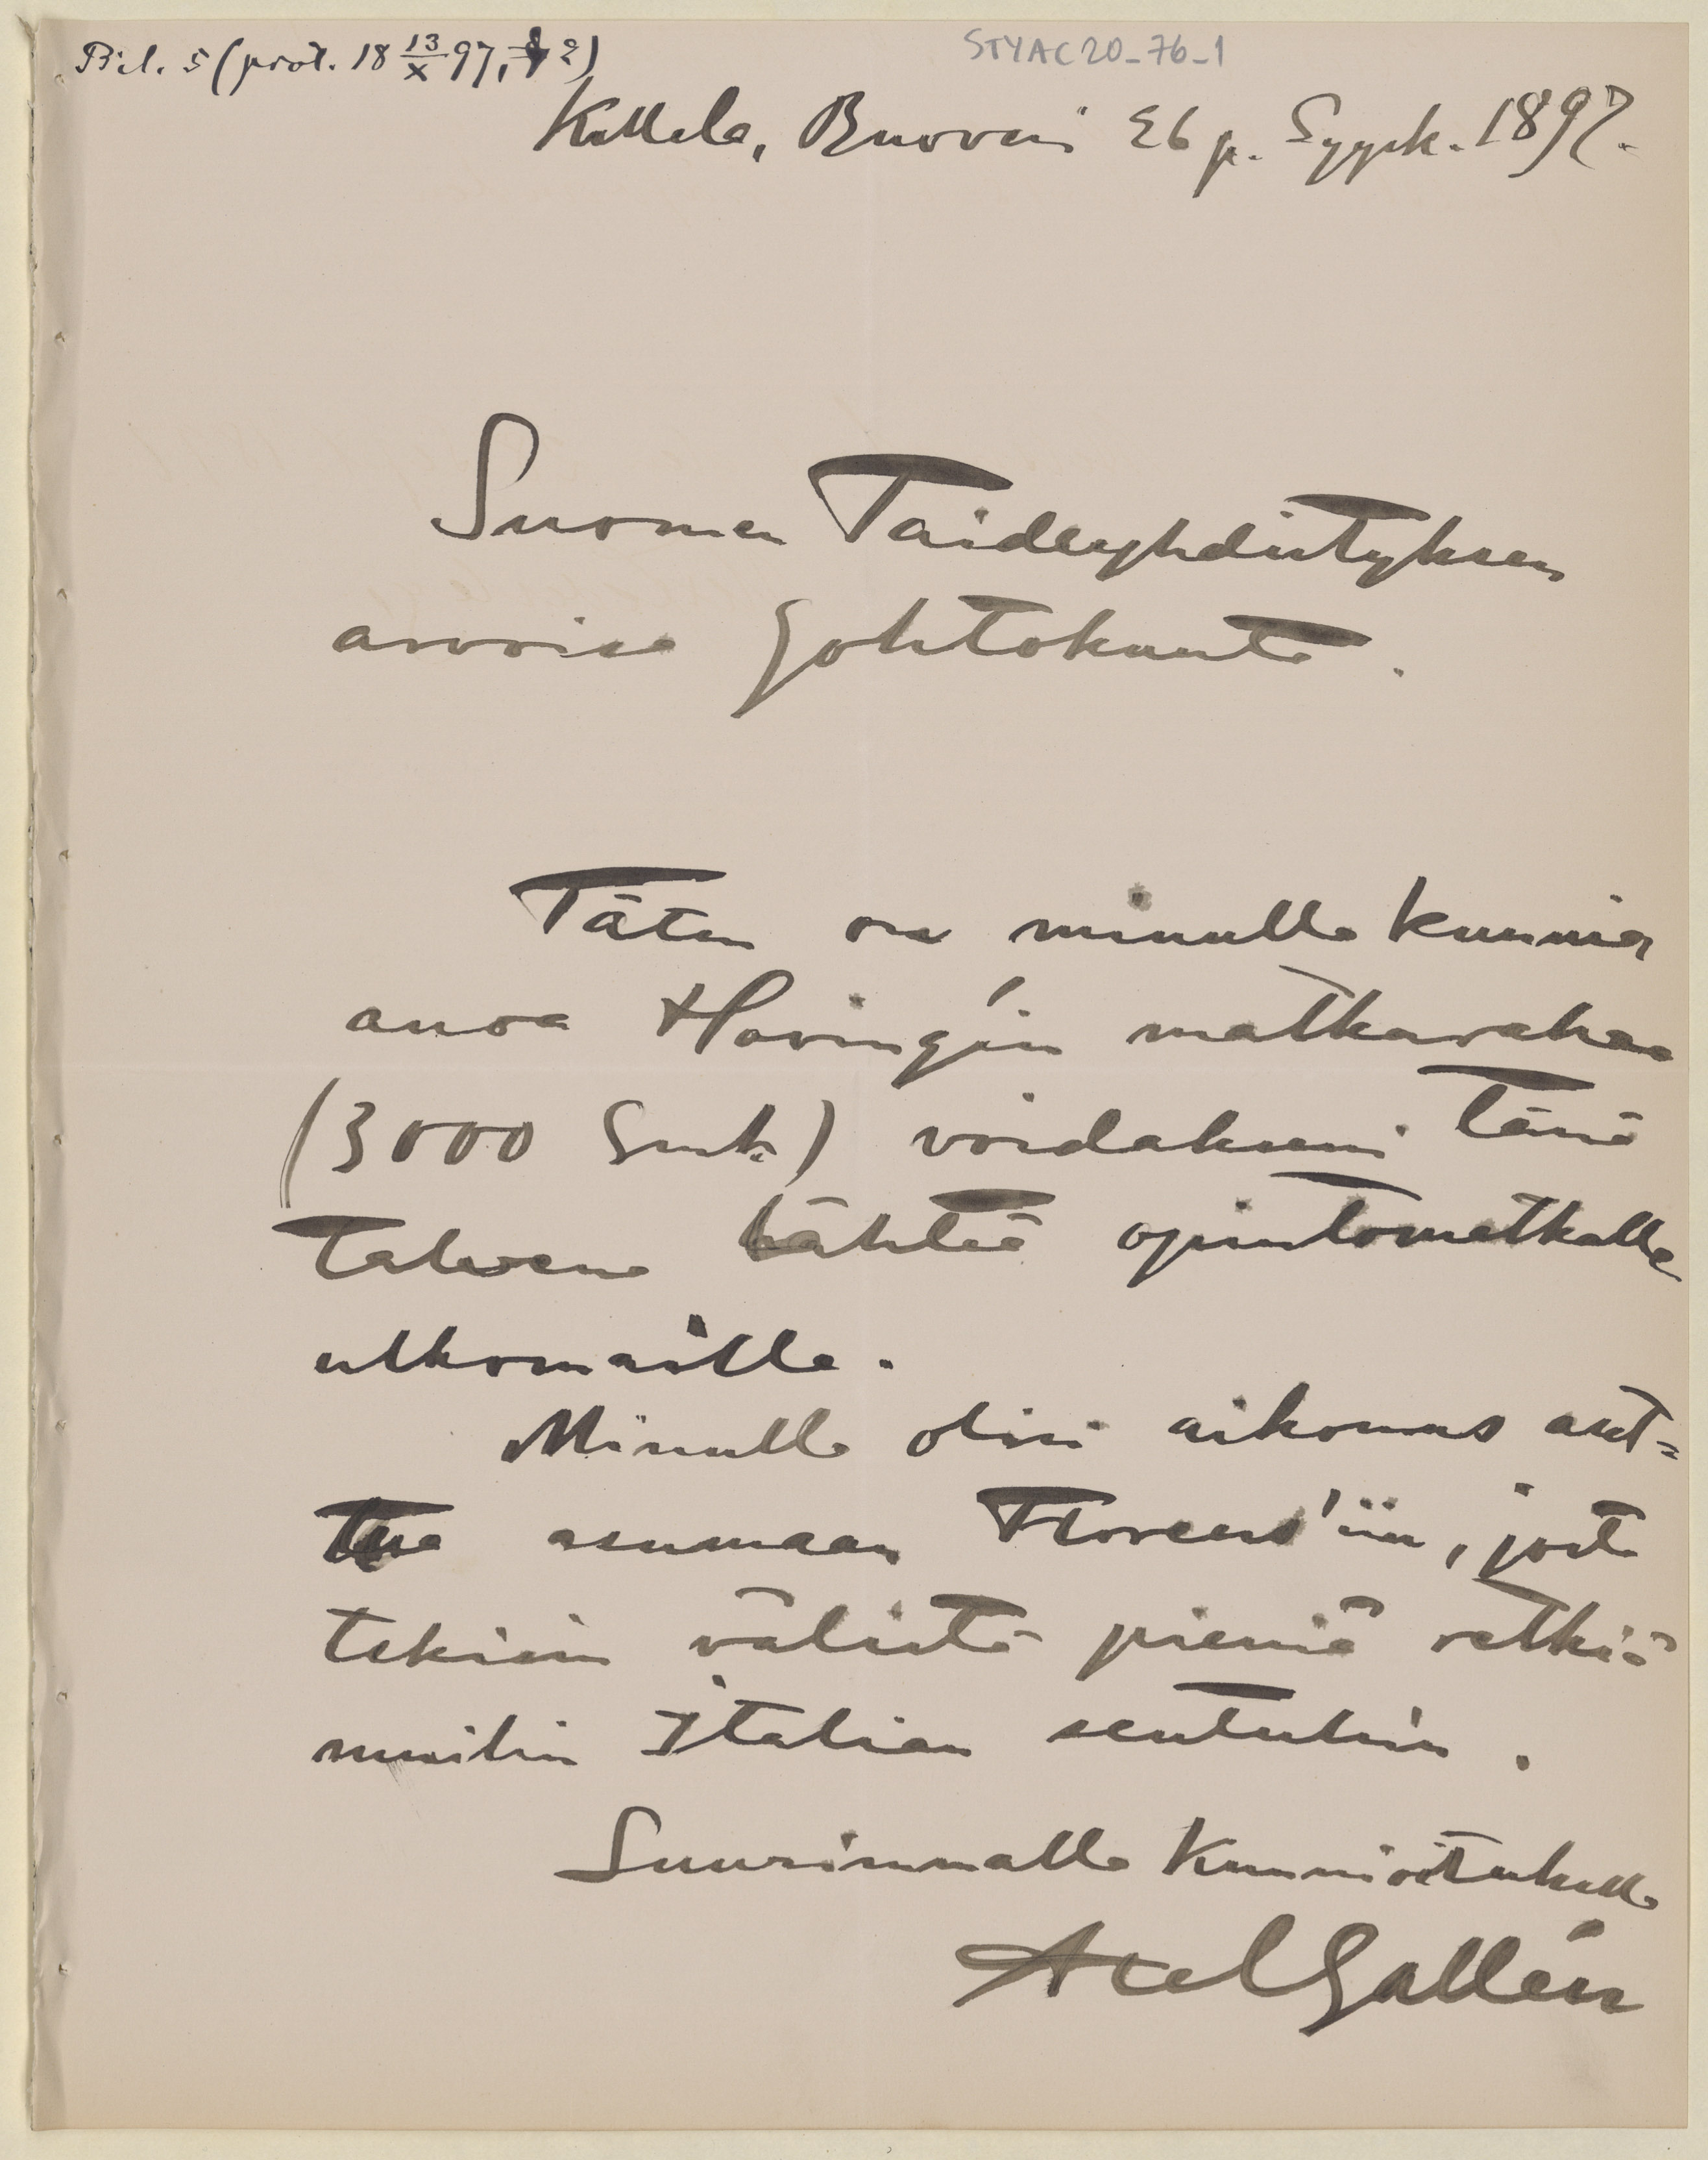 Bil. 5 (prot. 18 13/X 97, § 2)
STYAC20_76_1
Kallela, Ruovesi 26 p. Syysk. 1897.
Suomen Taideyhdistyksen
arvoisa Johtokunta.
Täten on minulla kunnia
anoa Hoving'in matkarahaa
(3000 Smk.) voidakseni tänä
talvena lähteä opintomatkalle
ulkomaille.
Minulla olisi aikomus aset=
tua asumaan Florens'iin, josta
tekisin välistä pieniä retkiä
muihin Italian seutuhin.
Suurimmalla Kunnioituksella
Axel Gallén